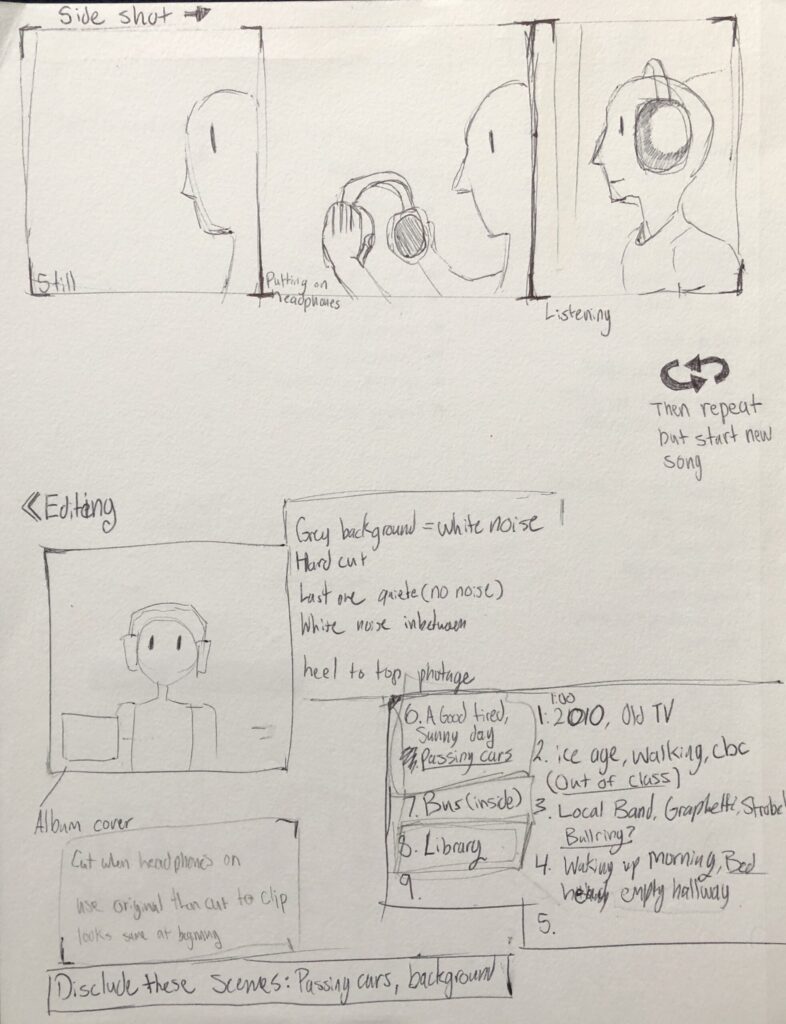 Side shot →
Still
Putting on
headphones
Listening
Then repeat
but start new
song
Editing
Grey background = white noise
Hard cut
Last one quiete (no noise)
White noise inbetween
heel to top photage
Album cover
Cut when headphones on
use original than cut to clip
looks same at begining
6. A Good tired,
Sunny day
Passing cars
7. Bus (inside)
8. Library
9.
1:00
1. 2010, Old TV
2. ice age, walking, cbc
(Out of class)
3. Local Band, Graphetti, Strobe
Bullring?
4. Waking up morning, Bed
empty hallway
5.
Disclude these scenes: Passing cars, background